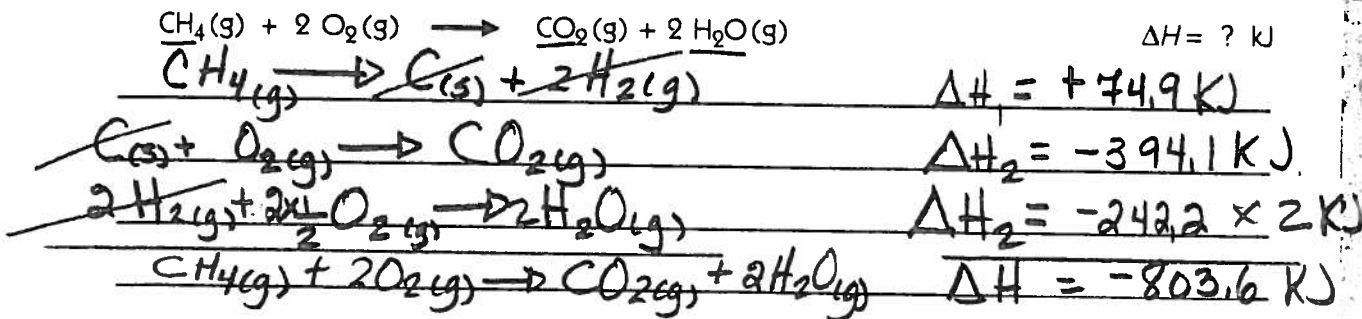 CH₄(g) + 2 O₂(g) ⟶ CO₂(g) + 2 H₂O(g) ΔH = ? kJ
CH₄(g) ⟶ C(s) + 2H₂(g) ΔH₁ = +74,9 KJ
C(s) + O₂(g) ⟶ CO₂(g) ΔH₂ = -394,1 KJ
2H₂(g) + 2×1/2 O₂(g) ⟶ 2H₂O(g) ΔH₂ = -242,2 × 2 KJ
CH₄(g) + 2O₂(g) ⟶ CO₂(g) + 2H₂O(g) ΔH = -803,6 KJ